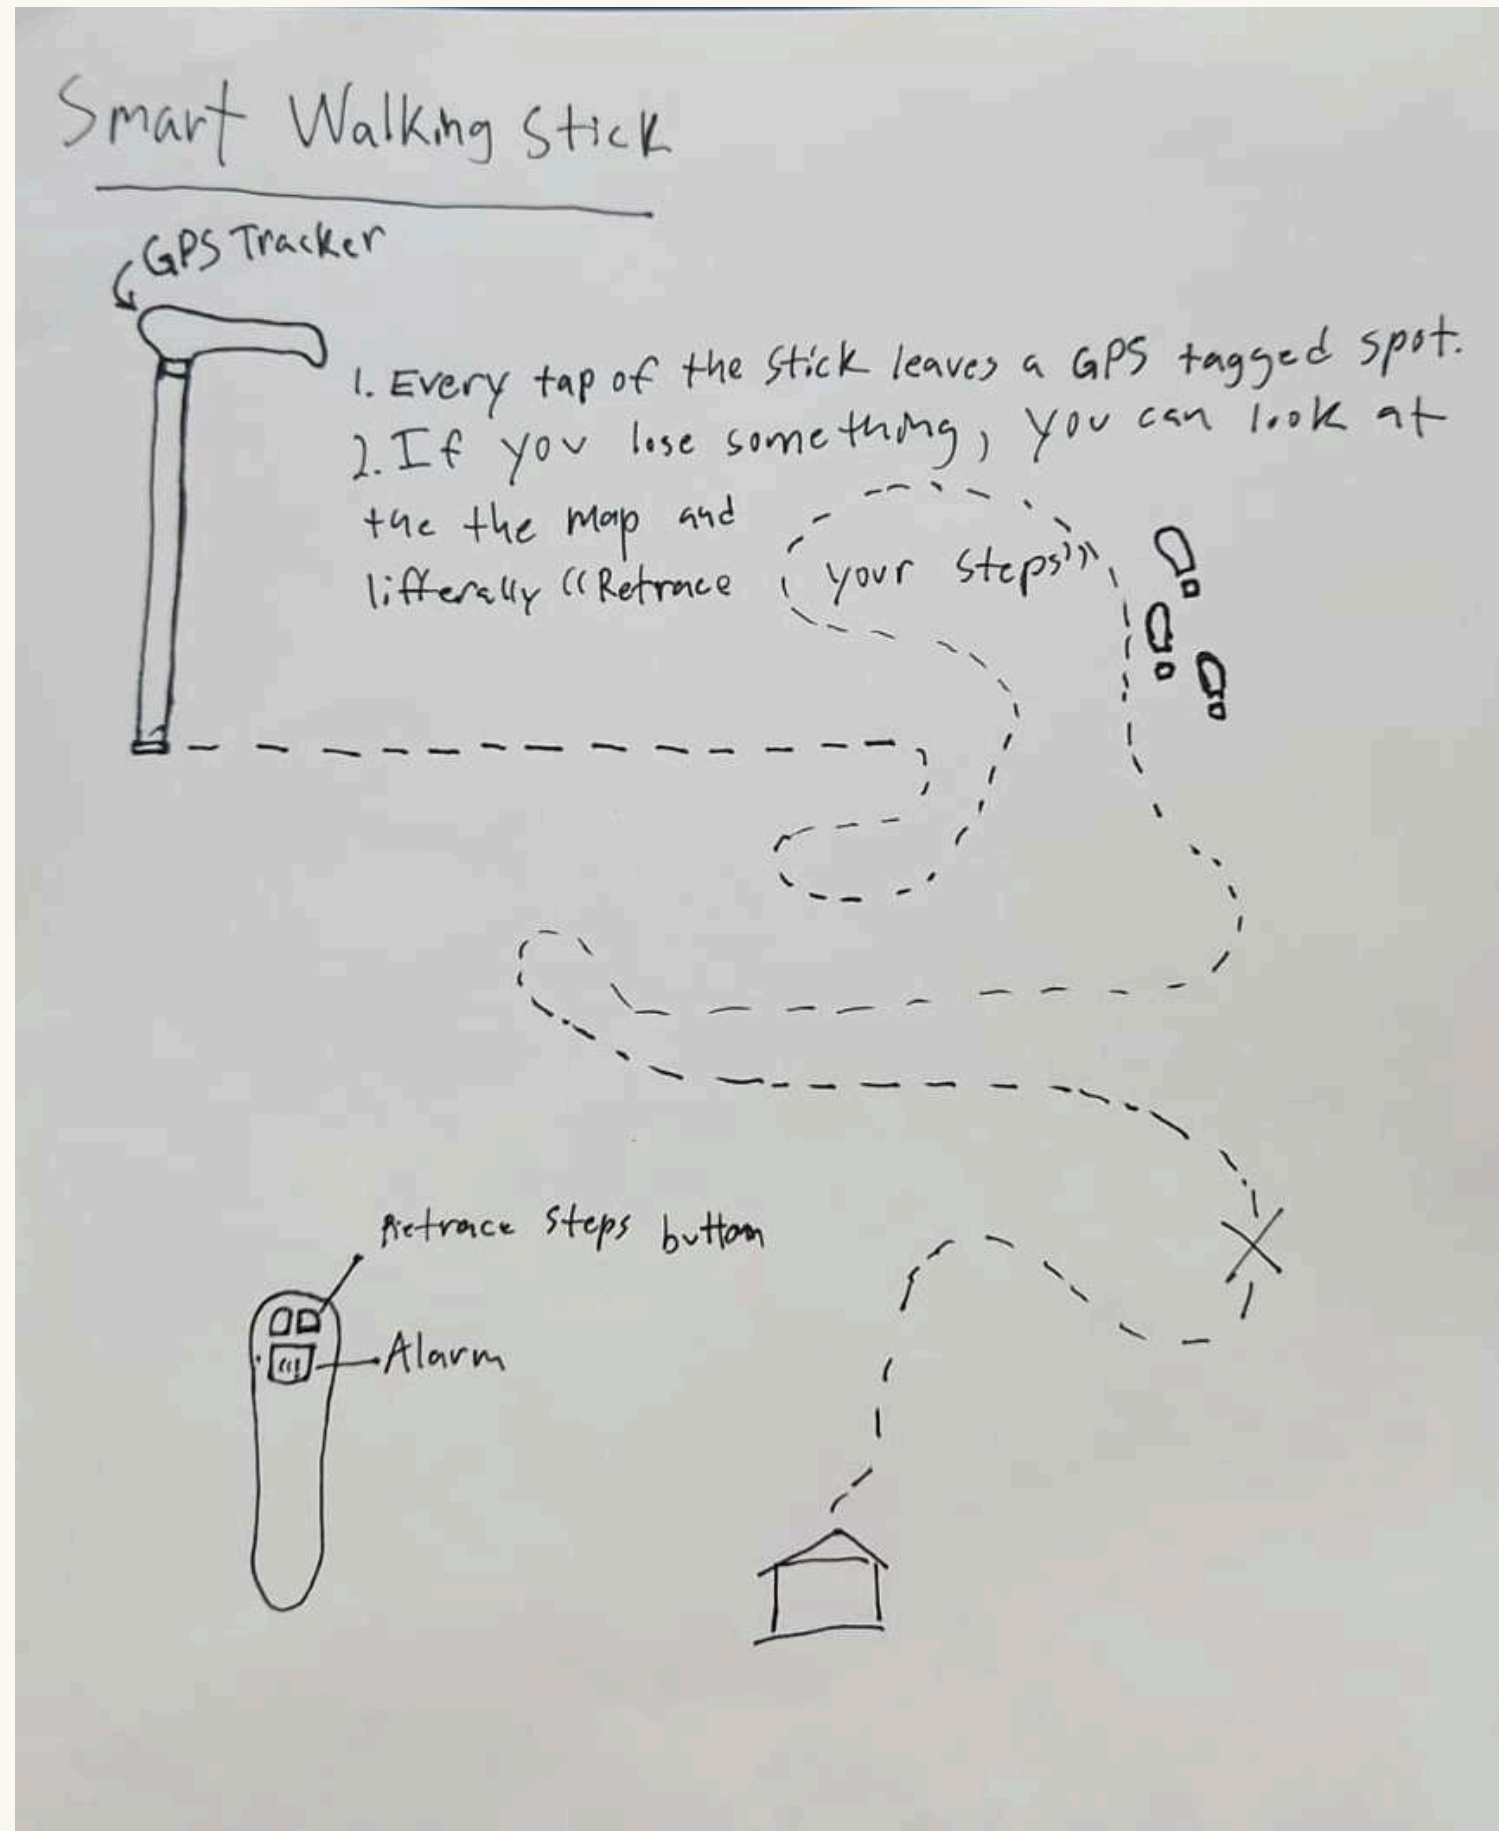 Smart Walking Stick
GPS Tracker
1. Every tap of the stick leaves a GPS tagged spot.
2. If you lose something, you can look at
the the map and
litterally "Retrace your steps"
Retrace steps button
Alarm